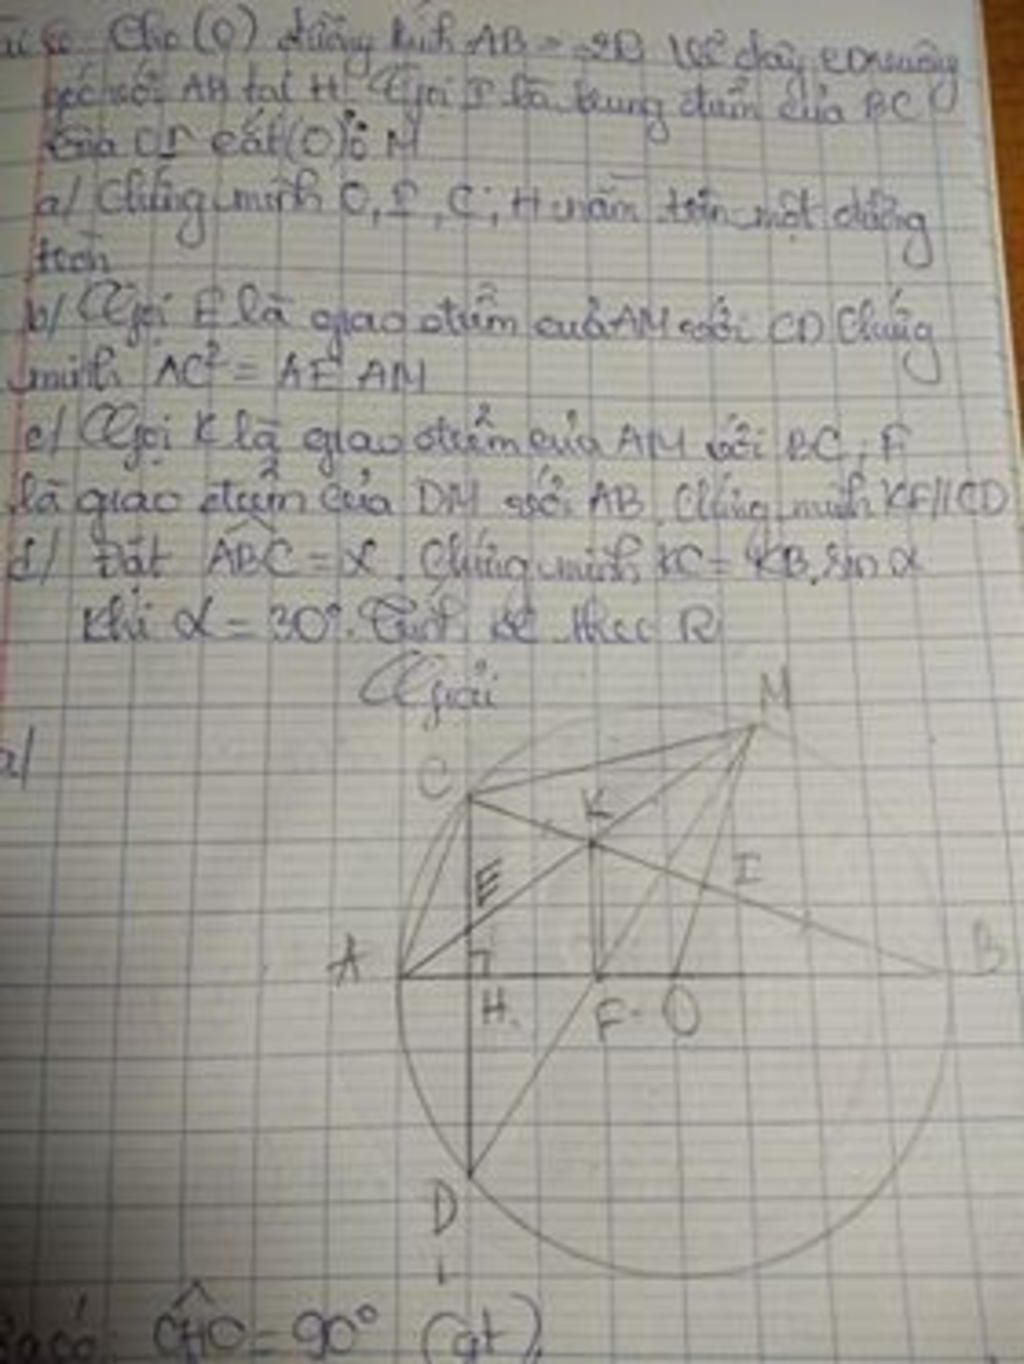 Cho (O) đường kính AB = 2R Vẽ dây CD vuông
góc với AB tại H. Gọi I là trung điểm của BC
Tia OI cắt (O) ở M
a/ Chứng minh O, I, C, H nằm trên một đường
tròn
b/ Gọi E là giao điểm của AM với CD Chứng
minh AC² = AE AM
c/ Gọi K là giao điểm của AM với BC, F
là giao điểm của DM với AB. Chứng minh KF//CD
d/ Đặt ABC = α. Chứng minh KC = KB.sin α
Khi α = 30°. Tính theo R
Giải
a/
M
C
K
E
I
A
B
H
F
O
D
Ta có CHO = 90° (gt)